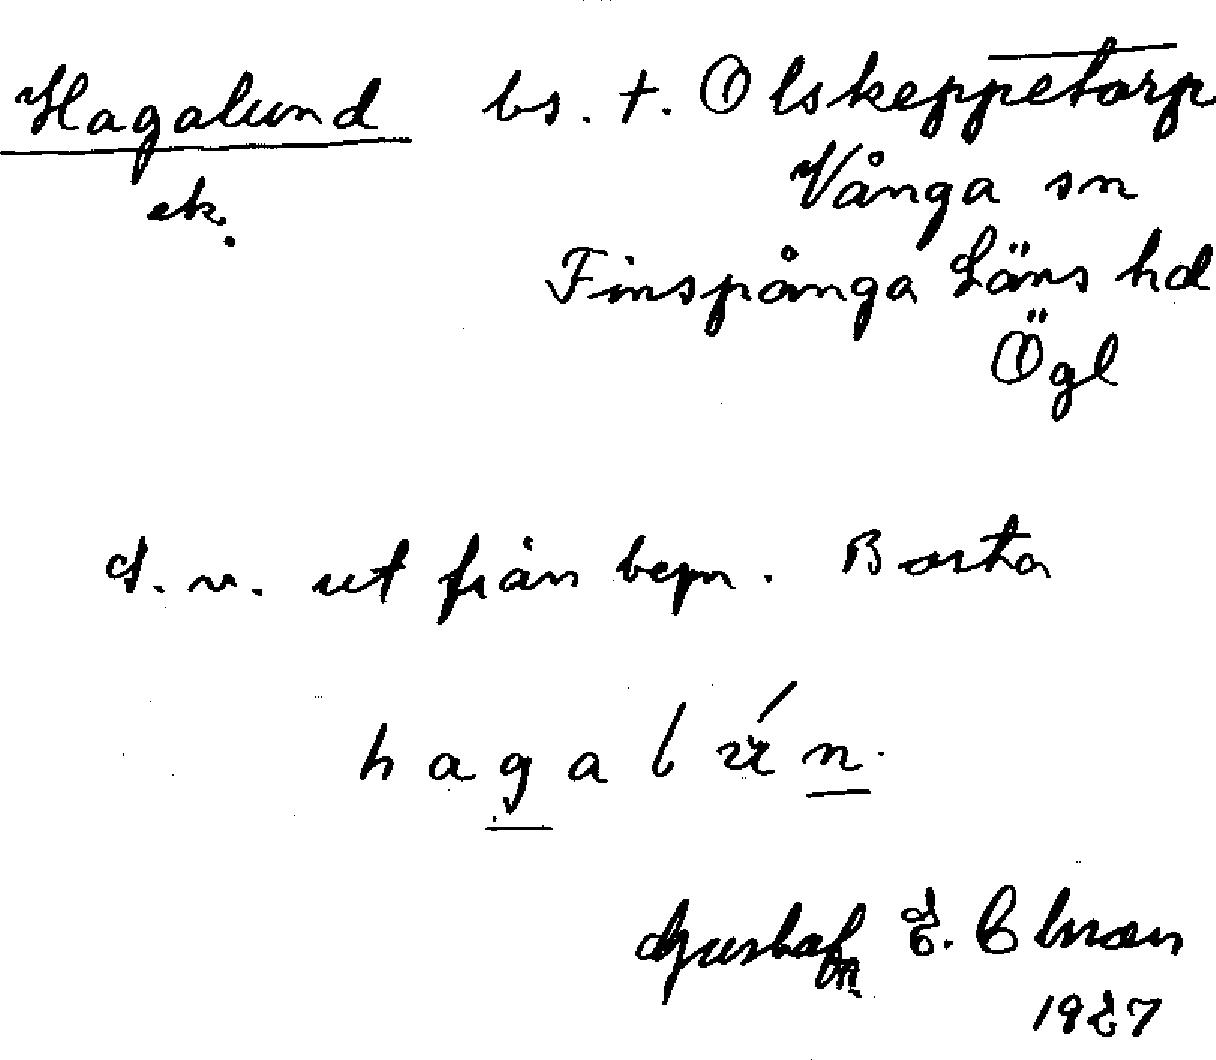 Hagalund bs. t. Olskeppetorp
ek. Vånga sn
Finspånga Läns hd
Ögl
d. v. ut från bepn. Borsta
hagalún.
Gustaf E.
1927